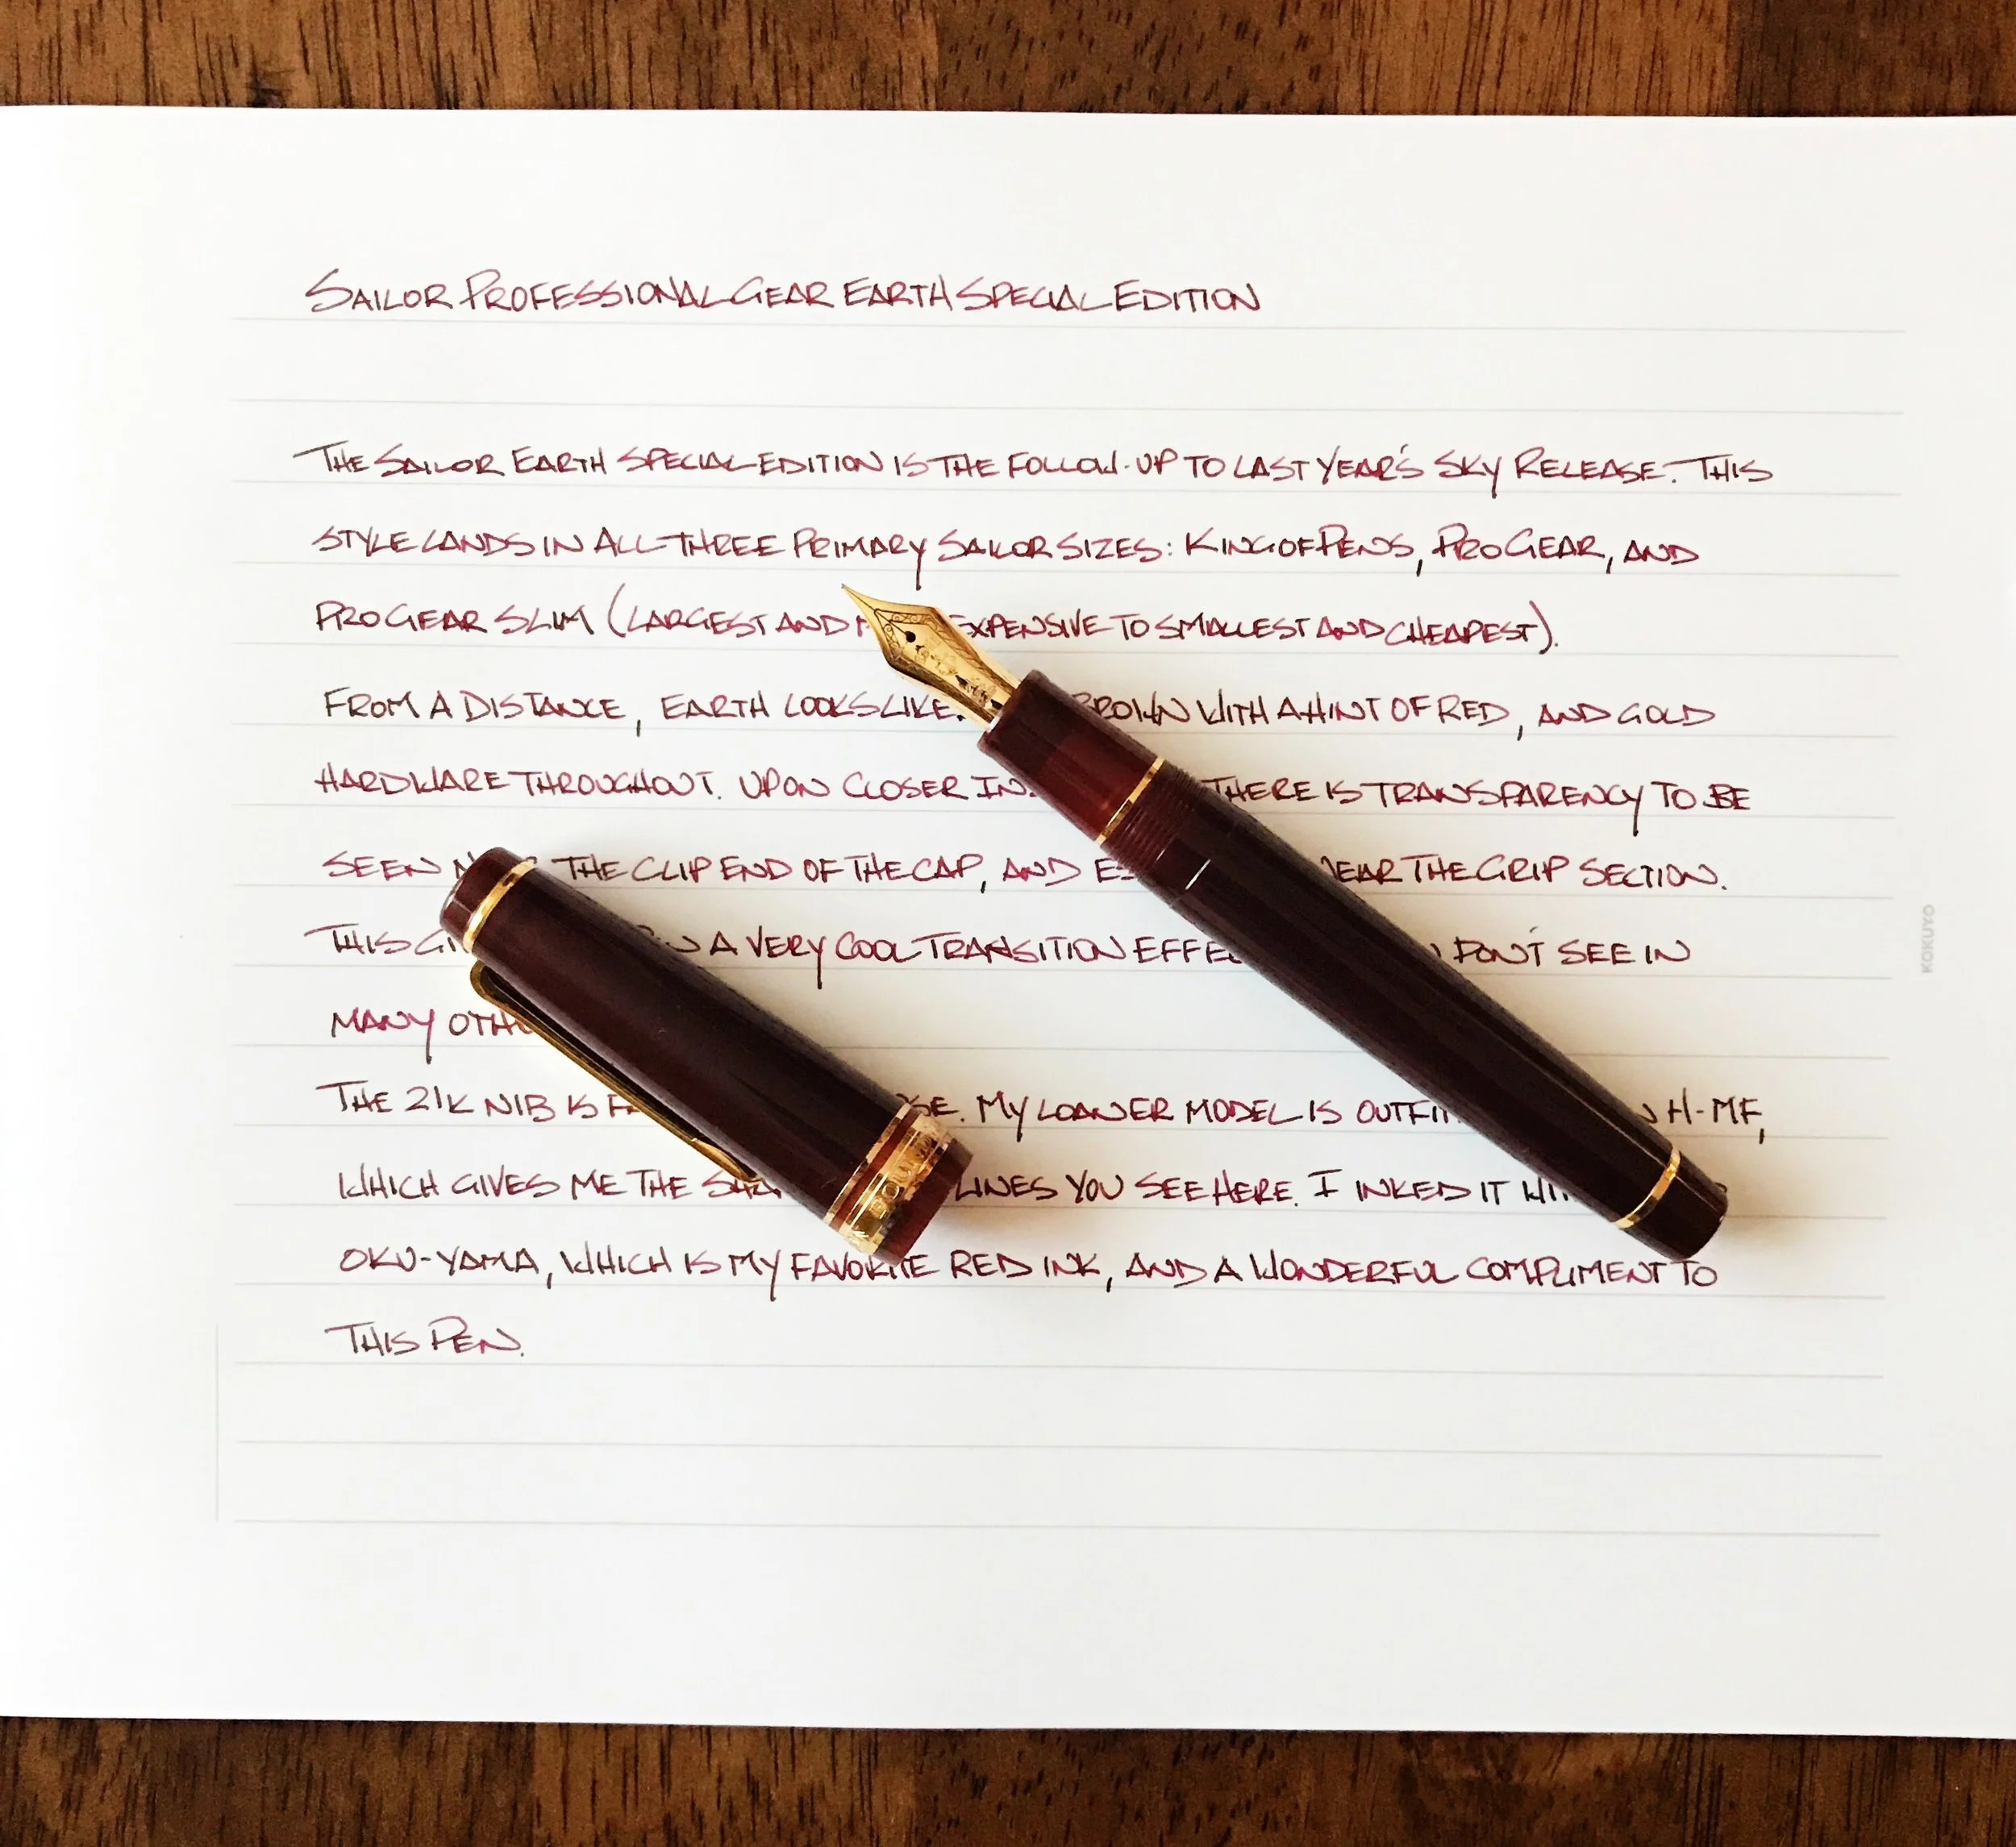 SAILOR PROFESSIONAL GEAR EARTH SPECIAL EDITION
THE SAILOR EARTH SPECIAL EDITION IS THE FOLLOW-UP TO LAST YEAR'S SKY RELEASE. THIS
STYLE LANDS IN ALL THREE PRIMARY SAILOR SIZES: KING OF PENS, PRO GEAR, AND
PRO GEAR SLIM (LARGEST AND EXPENSIVE TO SMALLEST AND CHEAPEST).
FROM A DISTANCE, EARTH LOOKS LIKE BROWN WITH A HINT OF RED, AND GOLD
HARDWARE THROUGHOUT. UPON CLOSER THERE IS TRANSPARENCY TO BE
SEEN THE CLIP END OF THE CAP, AND NEAR THE GRIP SECTION.
THIS A VERY COOL TRANSITION DON'T SEE IN
MANY
THE 21K NIB IS MY LOANER MODEL IS H-MF,
WHICH GIVES ME THE LINES YOU SEE HERE. I INKED IT
OKU-YAMA, WHICH IS MY FAVORITE RED INK, AND A WONDERFUL COMPLIMENT TO
THIS PEN.
KOKUYO